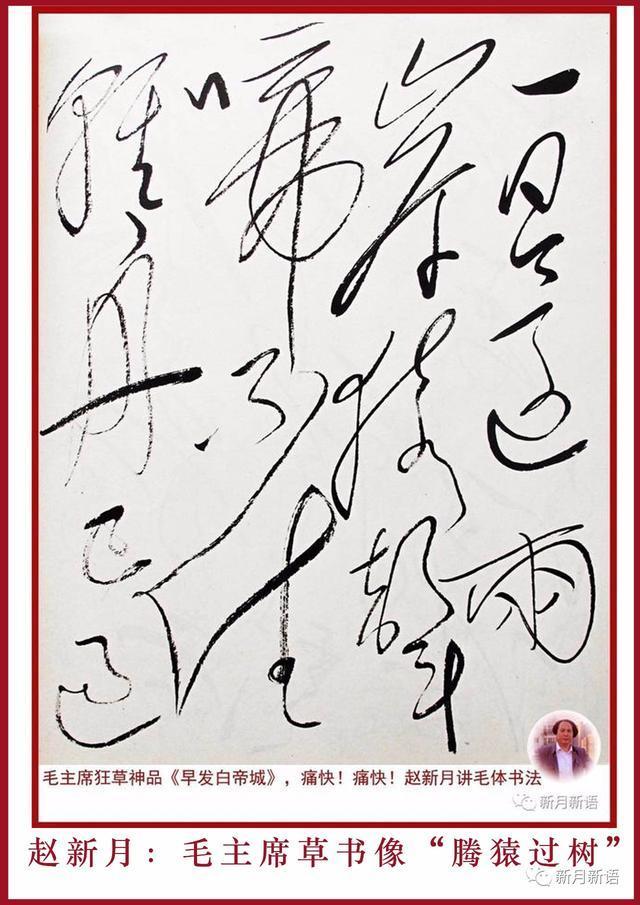 一日還兩
岸猿聲
啼不住
輕舟已過
毛主席狂草神品《早发白帝城》，痛快！痛快！赵新月讲毛体书法
新月新语
赵新月：毛主席草书像“腾猿过树”
新月新语